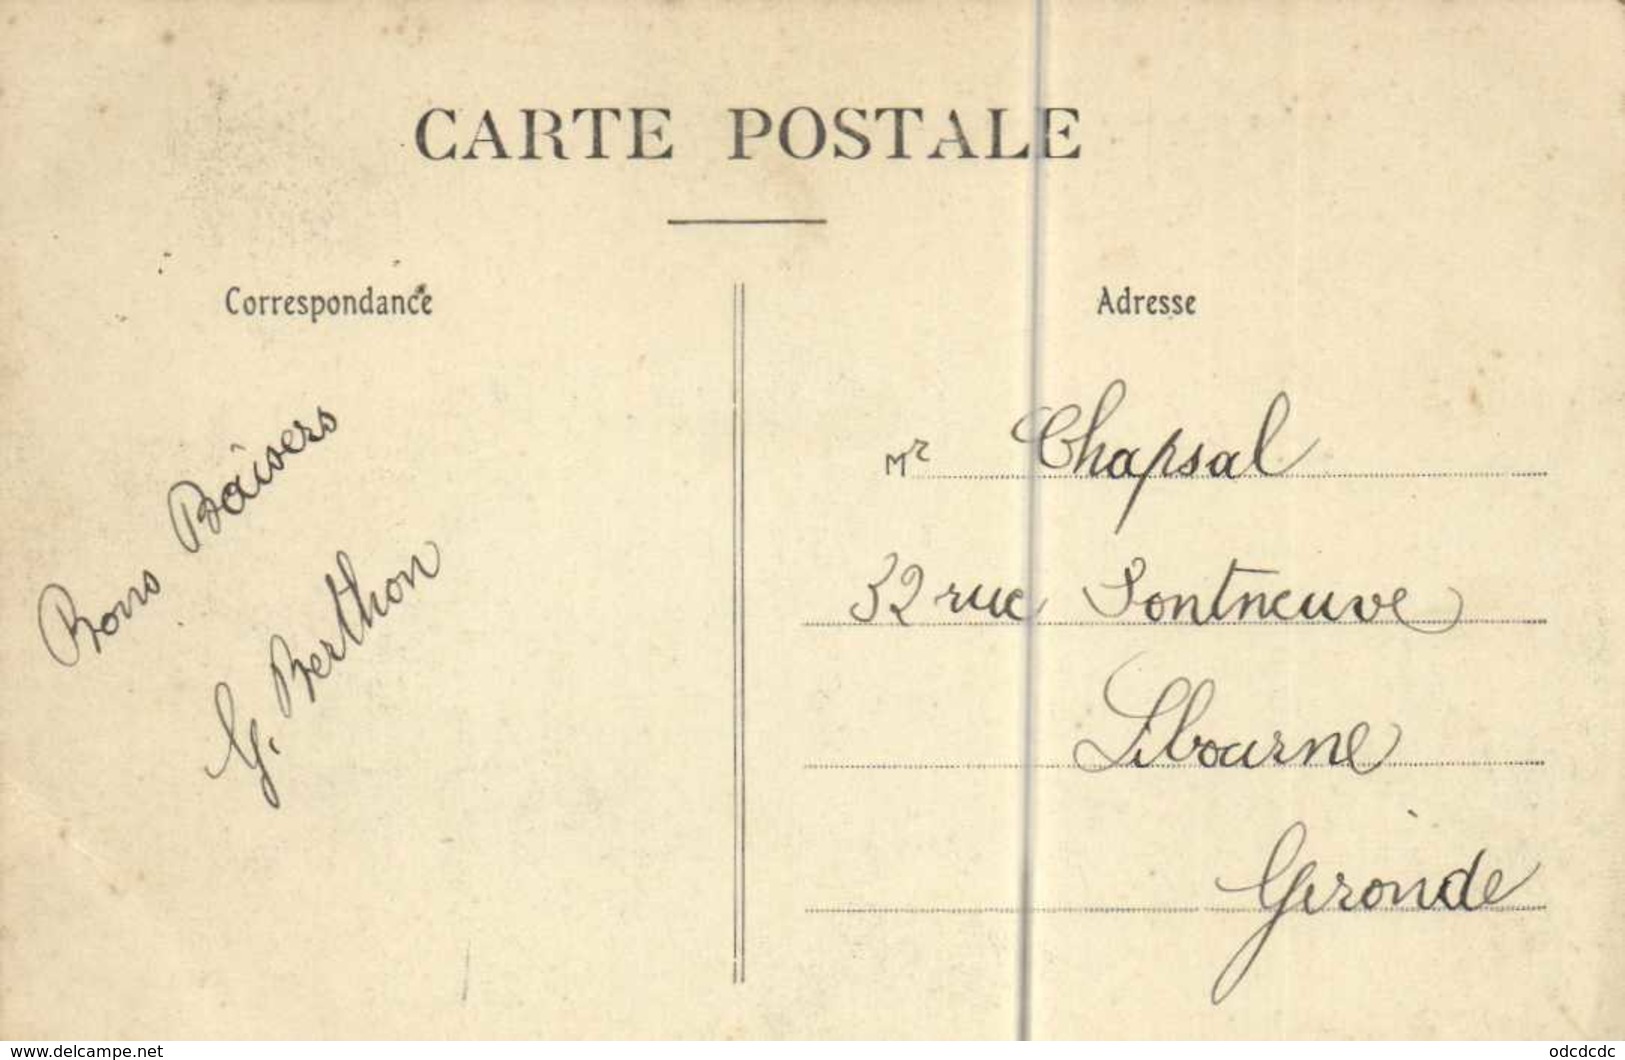 CARTE POSTALE
Correspondance
Bons Baisers
G. Berthon
Adresse
Mr Chapsal
32 rue Fontneuve
Libourne
Gironde
www.delcampe.net
odcdcdc